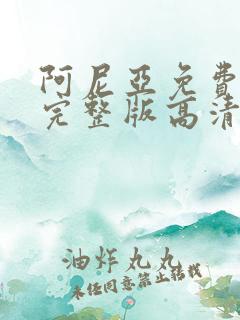 阿尼亞免費
完整版高清
油炸丸丸
未经同意禁止转载